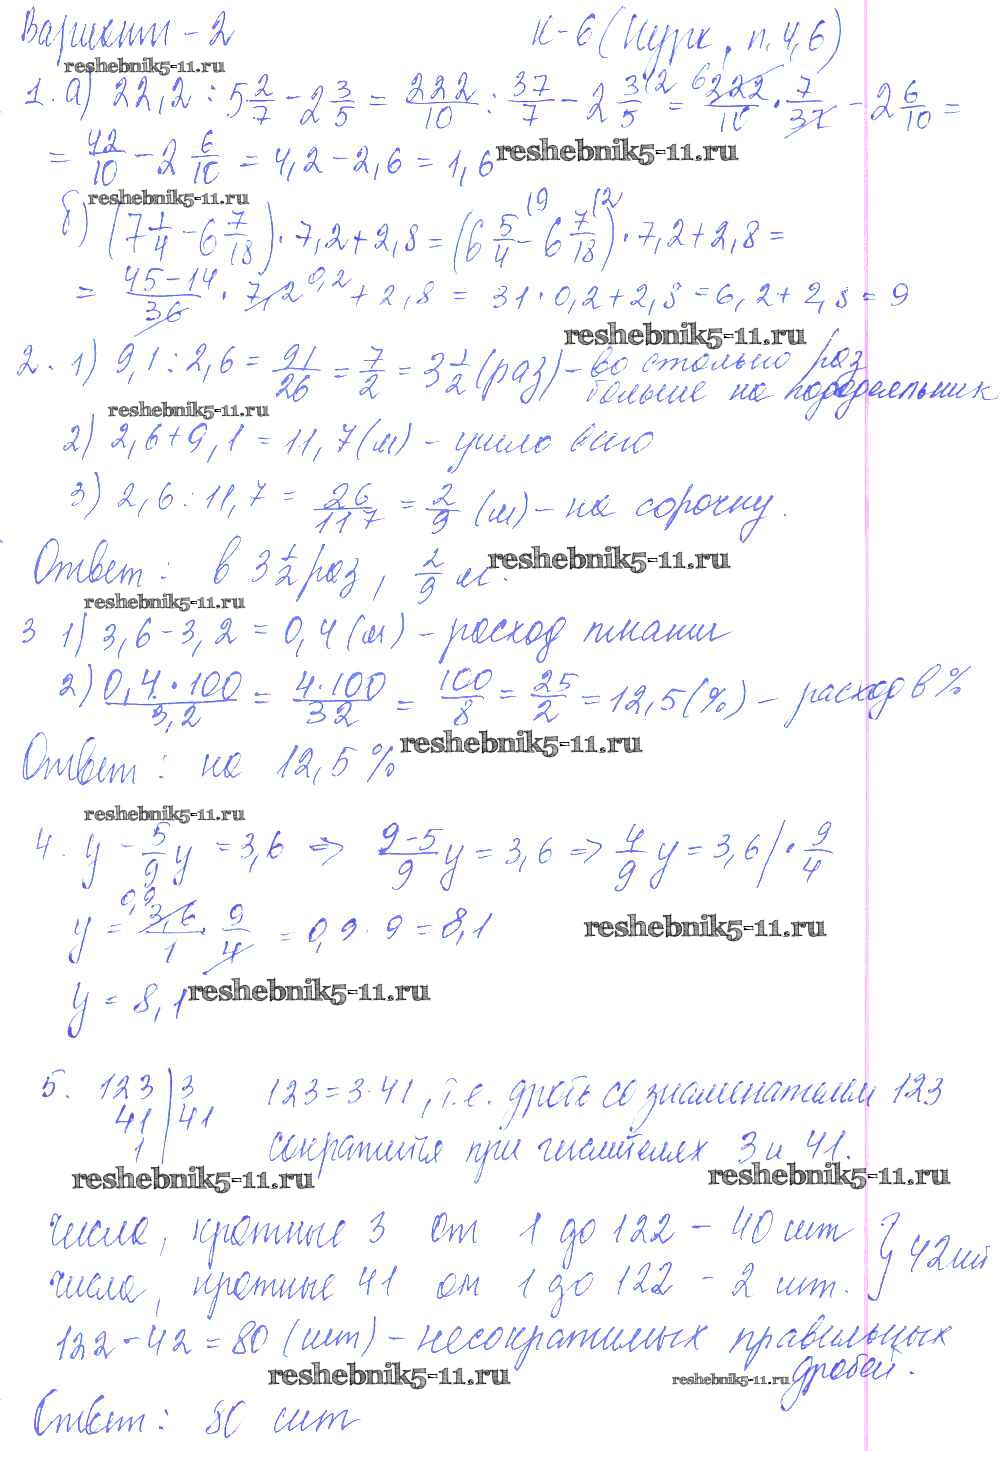 Вариант - 2 К-6 (Нурк, п. 4,6)
reshebnik5-11.ru
1. а) 22,2 : 5 2/7 - 2 3/5 = 222/10 : 37/7 - 2 3/5 = 222/10 · 7/37 - 2 6/10 =
= 42/10 - 2 6/10 = 4,2 - 2,6 = 1,6 reshebnik5-11.ru
reshebnik5-11.ru
б) (7 1/4 - 6 7/18) · 7,2 + 2,8 = (6 5/4 - 6 7/18) · 7,2 + 2,8 =
= 45-14/36 · 7,2 0,2 + 2,8 = 31 · 0,2 + 2,8 = 6,2 + 2,8 = 9
reshebnik5-11.ru
2. 1) 9,1 : 2,6 = 91/26 = 7/2 = 3 1/2 (раз) - во столько раз
больше на пододеяльник
reshebnik5-11.ru
2) 2,6 + 9,1 = 11,7 (м) - ушло всего
3) 2,6 : 11,7 = 26/117 = 2/9 (м) - на сорочку.
Ответ: в 3 1/2 раз, 2/9 м. reshebnik5-11.ru
reshebnik5-11.ru
3 1) 3,6 - 3,2 = 0,4 (м) - расход ткани
2) 0,4·100/3,2 = 4·100/32 = 100/8 = 25/2 = 12,5 (%) - расход в %
Ответ: на 12,5 % reshebnik5-11.ru
reshebnik5-11.ru
4. y - 5/9 y = 3,6 => 9-5/9 y = 3,6 => 4/9 y = 3,6 | · 9/4
y = 3,6/1 · 9/4 = 0,9 · 9 = 8,1 reshebnik5-11.ru
y = 8,1 reshebnik5-11.ru
5. 123 | 3 123 = 3·41, т.е. дробь со знаменателем 123
41 | 41 сократится при числителях 3 и 41.
1
reshebnik5-11.ru reshebnik5-11.ru
числа, кратные 3 от 1 до 122 - 40 шт } 42 шт
числа, кратные 41 от 1 до 122 - 2 шт.
122 - 42 = 80 (шт) - несократимых правильных
дробей.
reshebnik5-11.ru reshebnik5-11.ru
Ответ: 80 шт